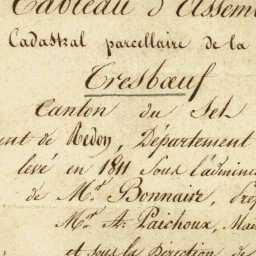 Tableau d'Assem
Cadastral parcellaire de la
Tresbœuf
Canton du Sel
ent de Redon, Département
levé en 1811 sous l'admini
de Mr. Bonnaire, Pré
Mr. A. Paichoux, Mai
et sous la Direction de